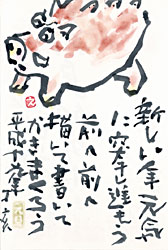 新しい年元気
に突き進もう
前へ前へ
描いて書いて
かきまくろう
平成十九年